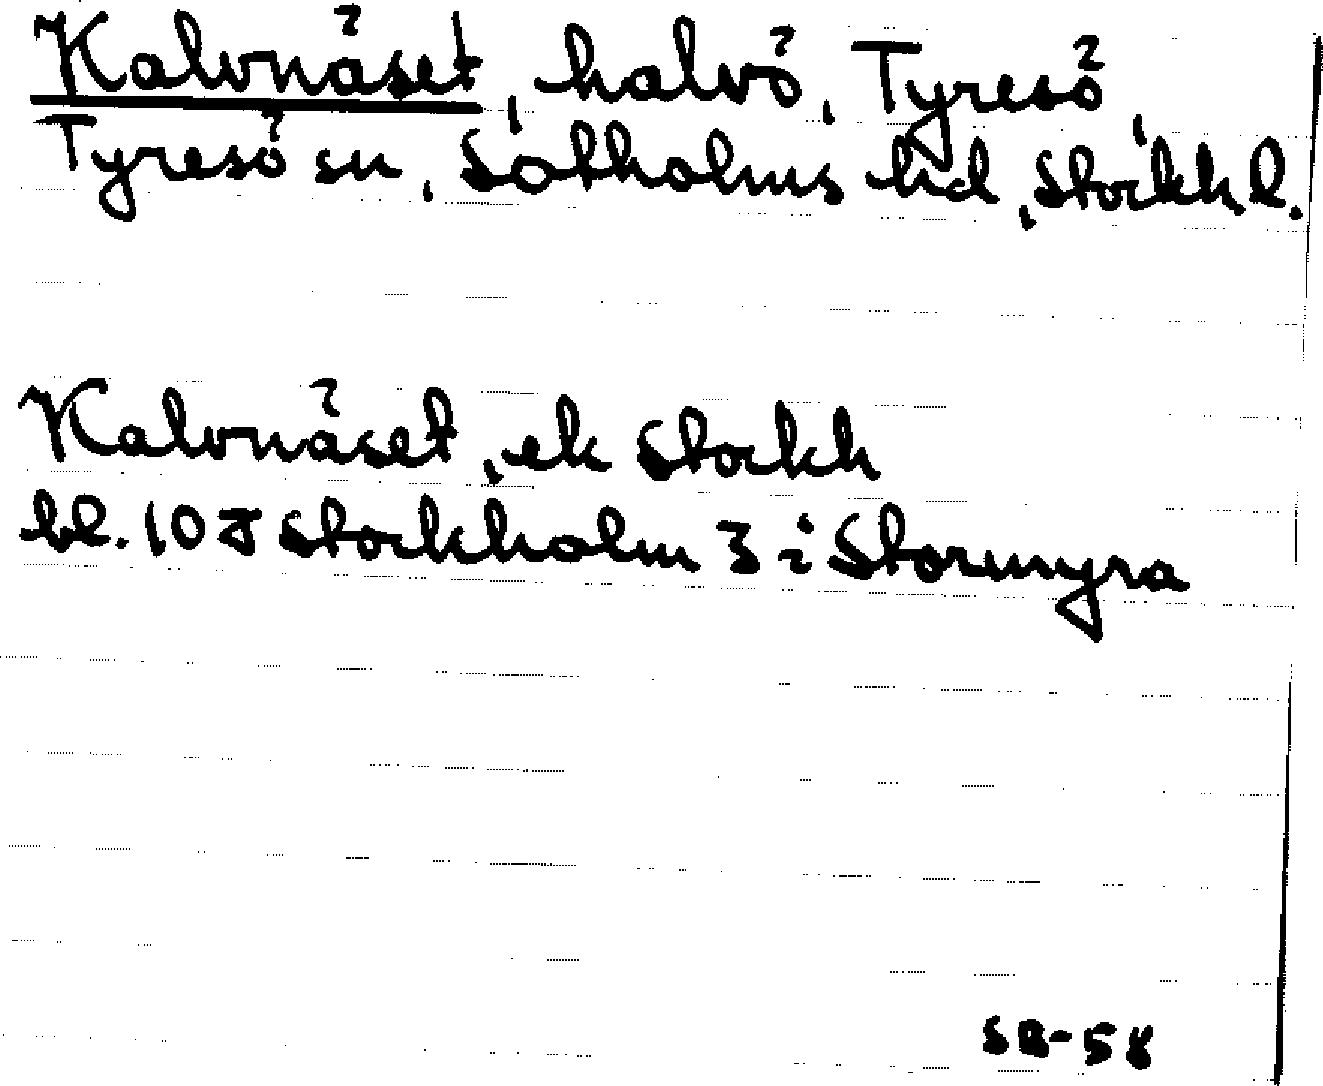 Kalvnäset, halvö, Tyresö,
Tyresö sn, Sotholms hd, Stockh l.
Kalvnäset, ek Stockh
bl. 10 J Stockholm 3 i Stormyra
SB-58